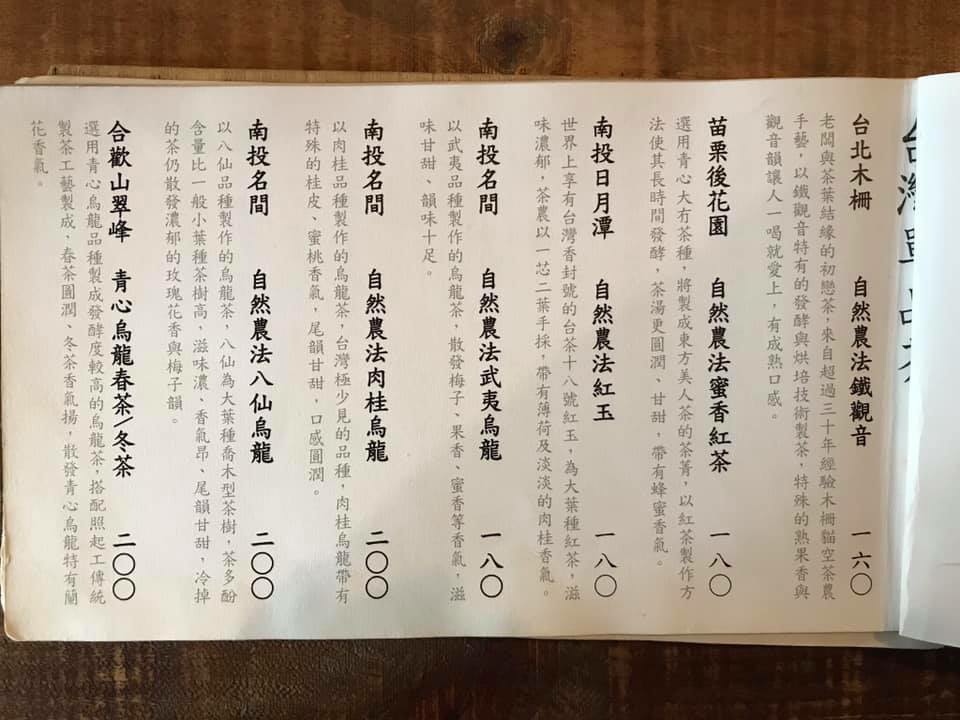 台灣單品茶
台北木柵　自然農法鐵觀音　一六〇
老闆與茶葉結緣的初戀茶，來自超過三十年經驗木柵貓空茶農
手藝，以鐵觀音特有的發酵與烘培技術製茶，特殊的熟果香與
觀音韻讓人一喝就愛上，有成熟口感。
苗栗後花園　自然農法蜜香紅茶　一八〇
選用青心大冇茶種，將製成東方美人茶的茶菁，以紅茶製作方
法使其長時間發酵，茶湯更圓潤、甘甜，帶有蜂蜜香氣。
南投日月潭　自然農法紅玉　一八〇
世界上享有台灣香封號的台茶十八號紅玉，為大葉種紅茶，滋
味濃郁，茶農以一芯二葉手採，帶有薄荷及淡淡的肉桂香氣。
南投名間　自然農法武夷烏龍　一八〇
以武夷品種製作的烏龍茶，散發梅子、果香、蜜香等香氣，滋
味甘甜、韻味十足。
南投名間　自然農法肉桂烏龍　二〇〇
以肉桂品種製作的烏龍茶，台灣極少見的品種，肉桂烏龍帶有
特殊的桂皮、蜜桃香氣，尾韻甘甜，口感圓潤。
南投名間　自然農法八仙烏龍　二〇〇
以八仙品種製作的烏龍茶，八仙為大葉種喬木型茶樹，茶多酚
含量比一般小葉種茶樹高，滋味濃、香氣昂、尾韻甘甜，冷掉
的茶仍散發濃郁的玫瑰花香與梅子韻。
合歡山翠峰　青心烏龍春茶／冬茶　二〇〇
選用青心烏龍品種製成發酵度較高的烏龍茶，搭配照起工傳統
製茶工藝製成、春茶圓潤、冬茶香氣揚，散發青心烏龍特有蘭
花香氣。